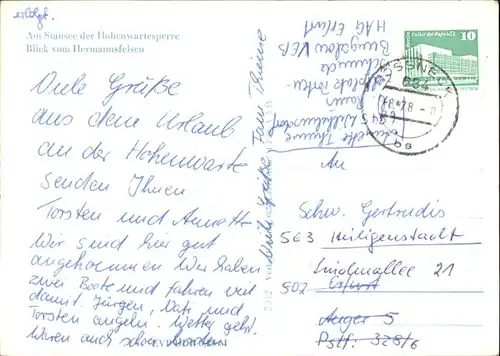 erledigt.
Am Stausee der Hohenwartesperre
Blick vom Hermannsfelsen
Viele Grüße
aus dem Urlaub
an der Hohenwarte
senden Ihnen
Torsten und Annette
Wir sind hier gut
angekommen Wir haben
zwei Boote und fahren viel
damit. Jürgen, Vati und
Torsten angeln. Wetter geht.
Waren auch schon
Viele Grüße Fam. Thieme
Annette Thieme
Bungalow VEB
HAG Erfurt
Palast der Republik
10
An
Schw. Gertrudis
563 Heiligenstadt
Lindenallee 21
502 Erfurt
Anger 5
Pstf. 328/6